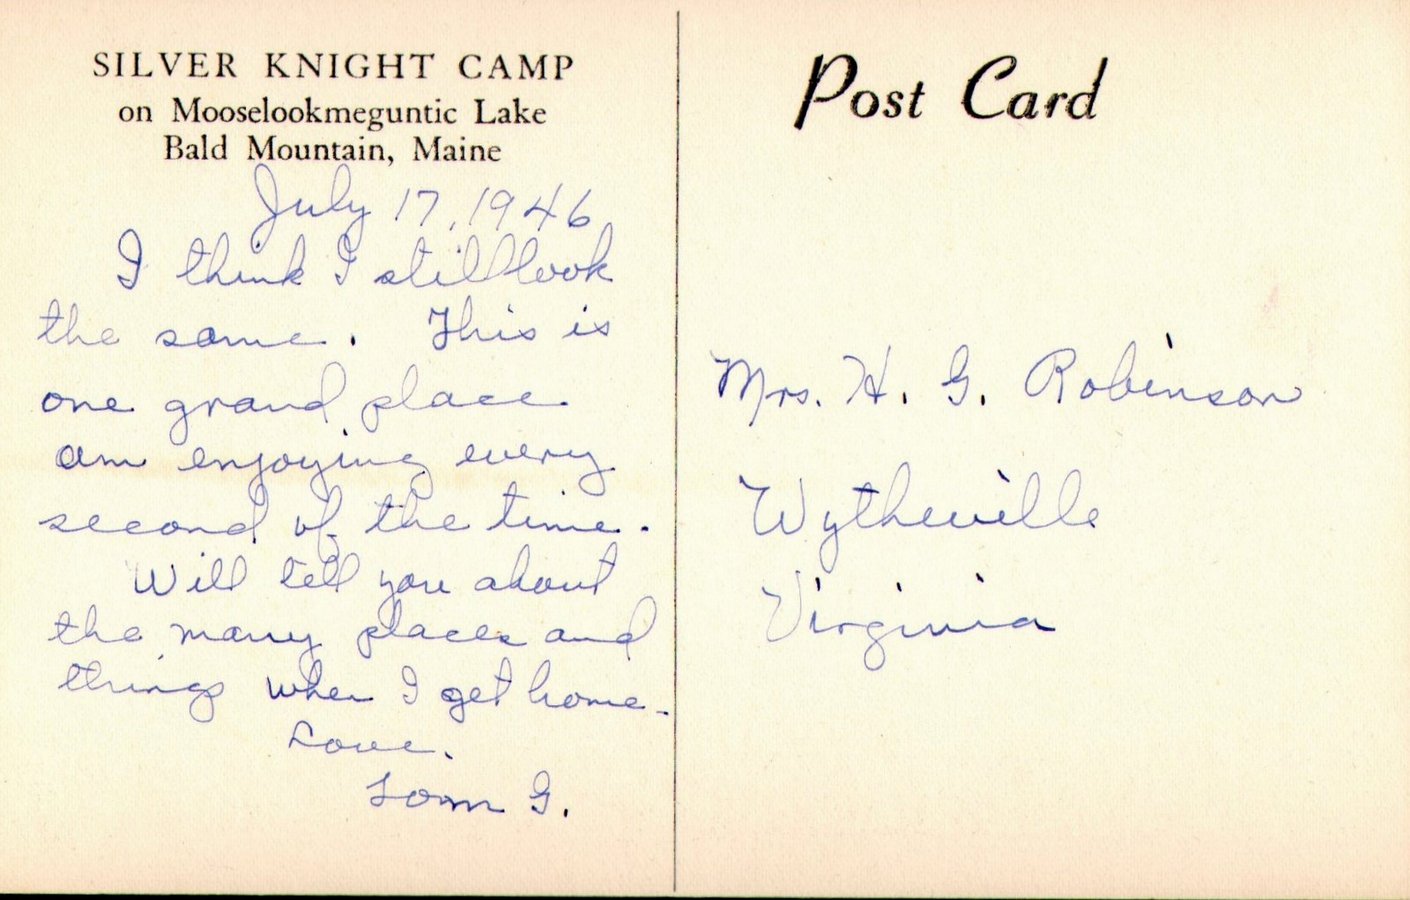 SILVER KNIGHT CAMP
on Mooselookmeguntic Lake
Bald Mountain, Maine
July 17, 1946
I think I still look
the same. This is
one grand place
am enjoying every
second of the time.
Will tell you about
the many places and
things when I get home.
Love.
G.
Post Card
Mrs. H. G. Robinson
Wytheville
Virginia